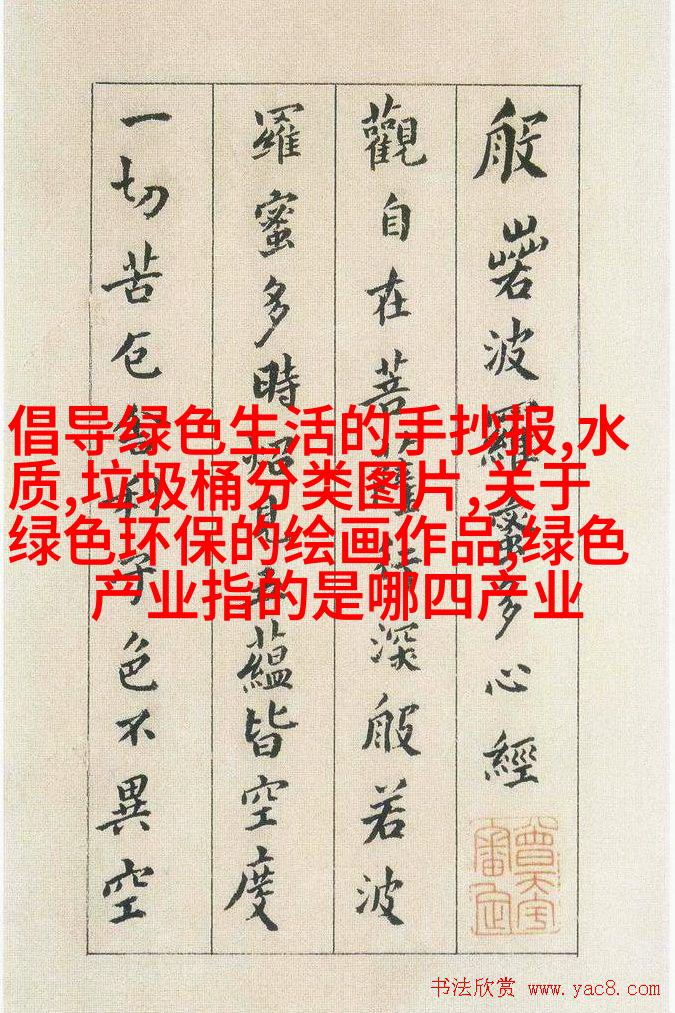 般若波羅蜜多心經
觀自在菩薩行深般若波
羅蜜多時照見五蘊皆空度
一切苦厄舍利子色不異空
倡导绿色生活的手抄报,水
质,垃圾桶分类图片,关于
绿色环保的绘画作品,绿色
产业指的是哪四产业
书法欣赏 www.yac8.com